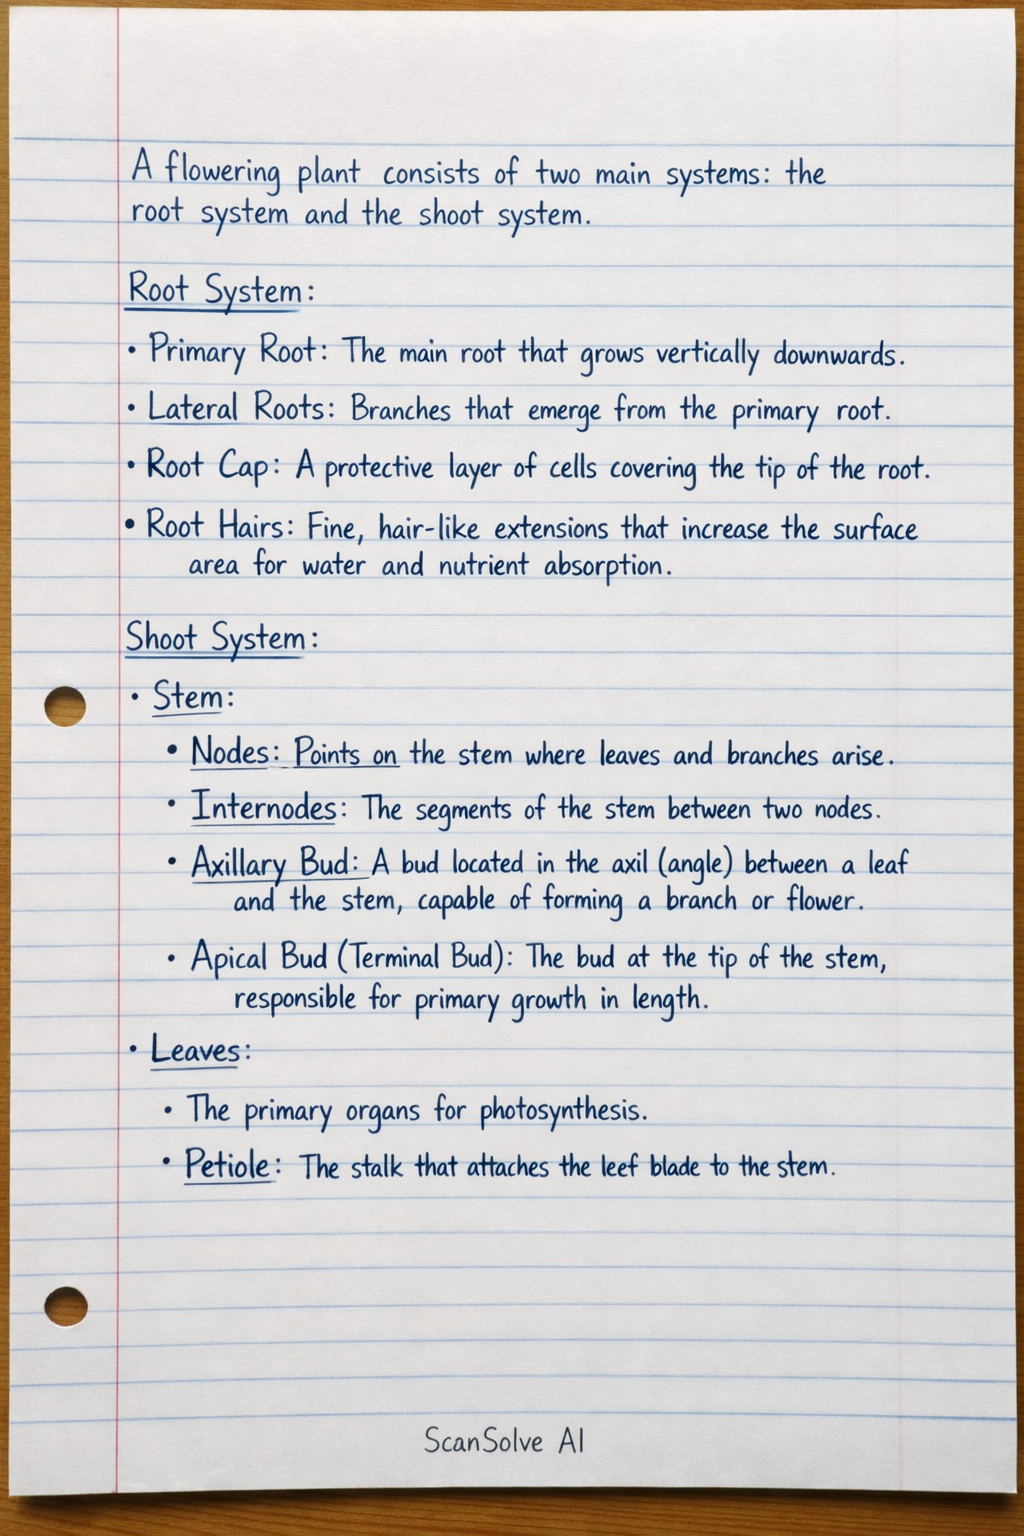 A flowering plant consists of two main systems: the
root system and the shoot system.
Root System:
• Primary Root: The main root that grows vertically downwards.
• Lateral Roots: Branches that emerge from the primary root.
• Root Cap: A protective layer of cells covering the tip of the root.
• Root Hairs: Fine, hair-like extensions that increase the surface
area for water and nutrient absorption.
Shoot System:
• Stem:
• Nodes: Points on the stem where leaves and branches arise.
• Internodes: The segments of the stem between two nodes.
• Axillary Bud: A bud located in the axil (angle) between a leaf
and the stem, capable of forming a branch or flower.
• Apical Bud (Terminal Bud): The bud at the tip of the stem,
responsible for primary growth in length.
• Leaves:
• The primary organs for photosynthesis.
• Petiole: The stalk that attaches the leef blade to the stem.
ScanSolve AI